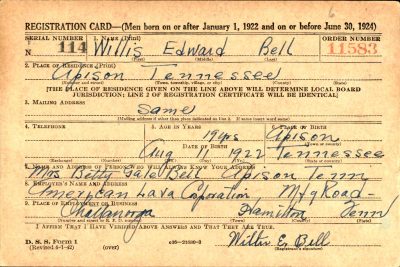 REGISTRATION CARD—(Men born on or after January 1, 1922 and on or before June 30, 1924)
SERIAL NUMBER 1. NAME (Print) ORDER NUMBER
N 114 Willis Edward Bell 11583
(First) (Middle) (Last)
2. PLACE OF RESIDENCE (Print)
Apison Tennessee
(Number and street) (Town, township, village, or city) (County) (State)
[THE PLACE OF RESIDENCE GIVEN ON THE LINE ABOVE WILL DETERMINE LOCAL BOARD
JURISDICTION; LINE 2 OF REGISTRATION CERTIFICATE WILL BE IDENTICAL]
3. MAILING ADDRESS
Same
[Mailing address if other than place indicated on line 2. If same insert word same]
4. TELEPHONE 5. AGE IN YEARS 6. PLACE OF BIRTH
19yrs Apison
DATE OF BIRTH (Town or county)
Aug 11 1922 Tennessee
(Exchange) (Number) (Mo.) (Day) (Yr.) (State or country)
7. NAME AND ADDRESS OF PERSON WHO WILL ALWAYS KNOW YOUR ADDRESS
Mrs Betty Bell Apison Tenn
8. EMPLOYER'S NAME AND ADDRESS
American Lava Corporation Mfg Road
9. PLACE OF EMPLOYMENT OR BUSINESS
Chattanooga Hamilton Tenn
(Number and street or R. F. D. number) (Town) (County) (State)
I AFFIRM THAT I HAVE VERIFIED ABOVE ANSWERS AND THAT THEY ARE TRUE.
D. S. S. Form 1 Willis E. Bell
(over) (Registrant's signature)